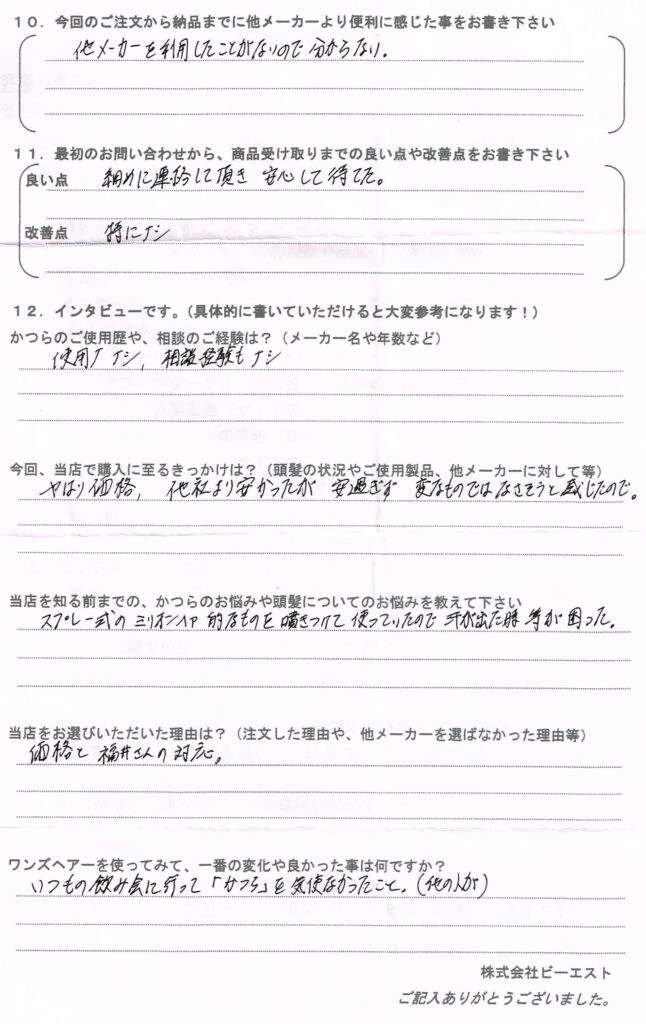 10．今回のご注文から納品までに他メーカーより便利に感じた事をお書き下さい
他メーカーを利用したことがないので分からない.
11．最初のお問い合わせから、商品受け取りまでの良い点や改善点をお書き下さい
良い点 細めに連絡して頂き 安心して待てた。
改善点 特にナシ
12．インタビューです。（具体的に書いていただけると大変参考になります！）
かつらのご使用歴や、相談のご経験は？（メーカー名や年数など）
使用ナシ, 相談経験もナシ
今回、当店で購入に至るきっかけは？（頭髪の状況やご使用製品、他メーカーに対して等）
やはり価格, 他社より安かったが 安過ぎず 変なものではなさそうと感じたので。
当店を知る前までの、かつらのお悩みや頭髪についてのお悩みを教えて下さい
スプレー式の ミリオンヘア 的なものを 噴きつけて 使っていたので 汗が出た時 等が 困った.
当店をお選びいただいた理由は？（注文した理由や、他メーカーを選ばなかった理由等）
価格と 福井さんの 対応。
ワンズヘアーを使ってみて、一番の変化や良かった事は何ですか？
いつもの飲み会に行って「かつら」を気使なかったこと.（他の人が）
株式会社ビーエスト
ご記入ありがとうございました。